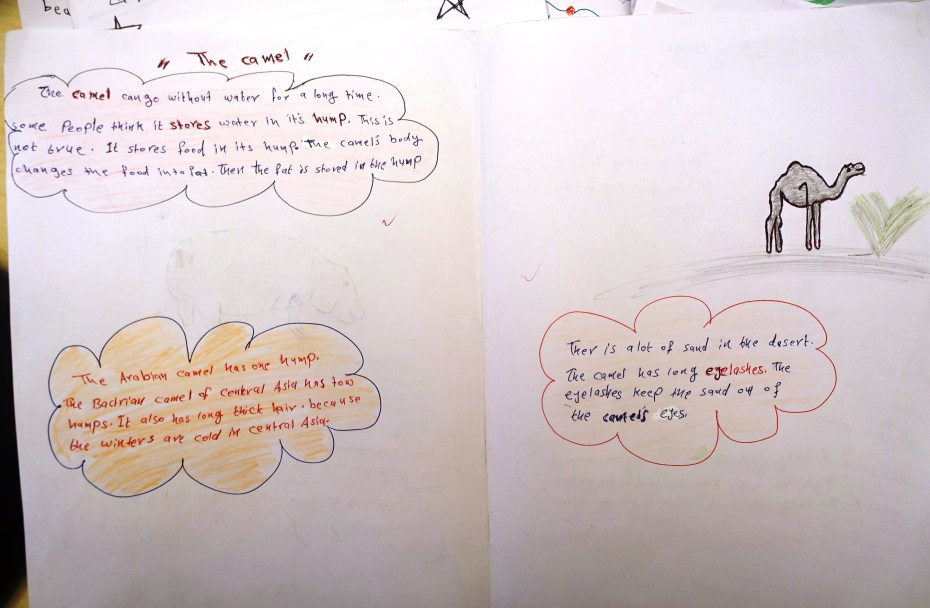 bea
" The camel "
The camel can go without water for a long time.
some People think it stores water in it's hump. This is
not true. It stores food in its hump. The camel's body
changes the food into fat. Then the fat is stored in the hump
The Arabian camel has one hump.
The Bactrian camel of central Asia has tow
humps. It also has long thick hair. because
the winters are cold in central Asia.
Ther is alot of sand in the desert.
The camel has long eyelashes. The
eyelashes keep the sand out of
the camel's eyes.